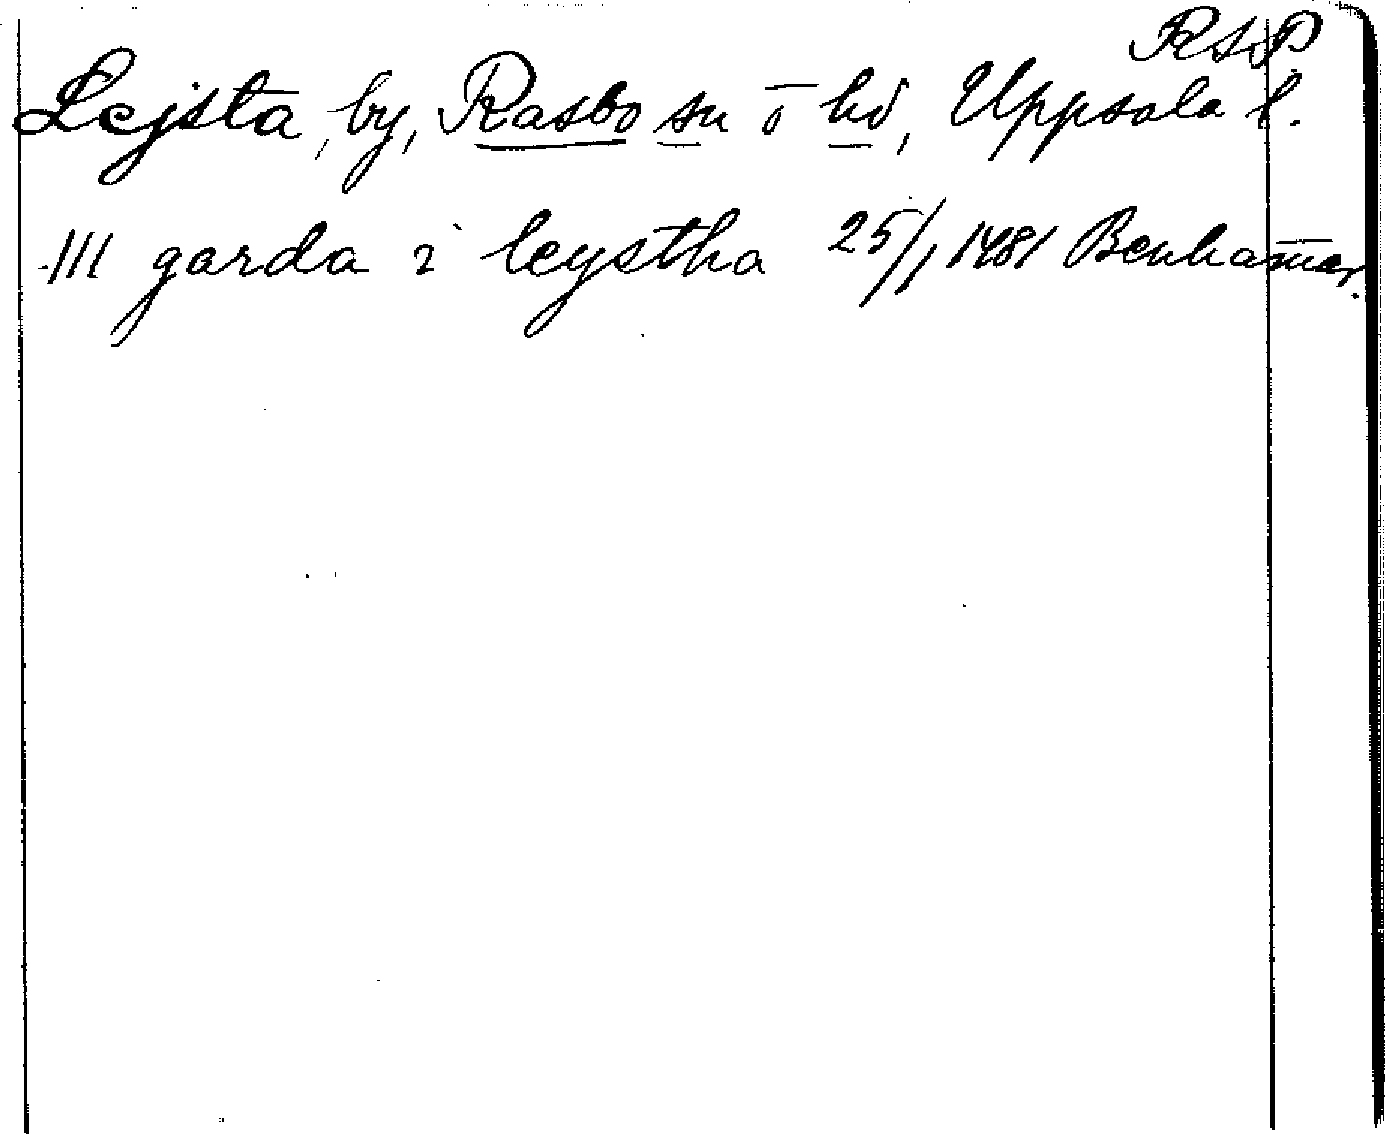 RAP.
Lejsta, by, Rasbo sn o hd, Uppsala l.
III garda i leystha 25/1 1481 Benhamar.